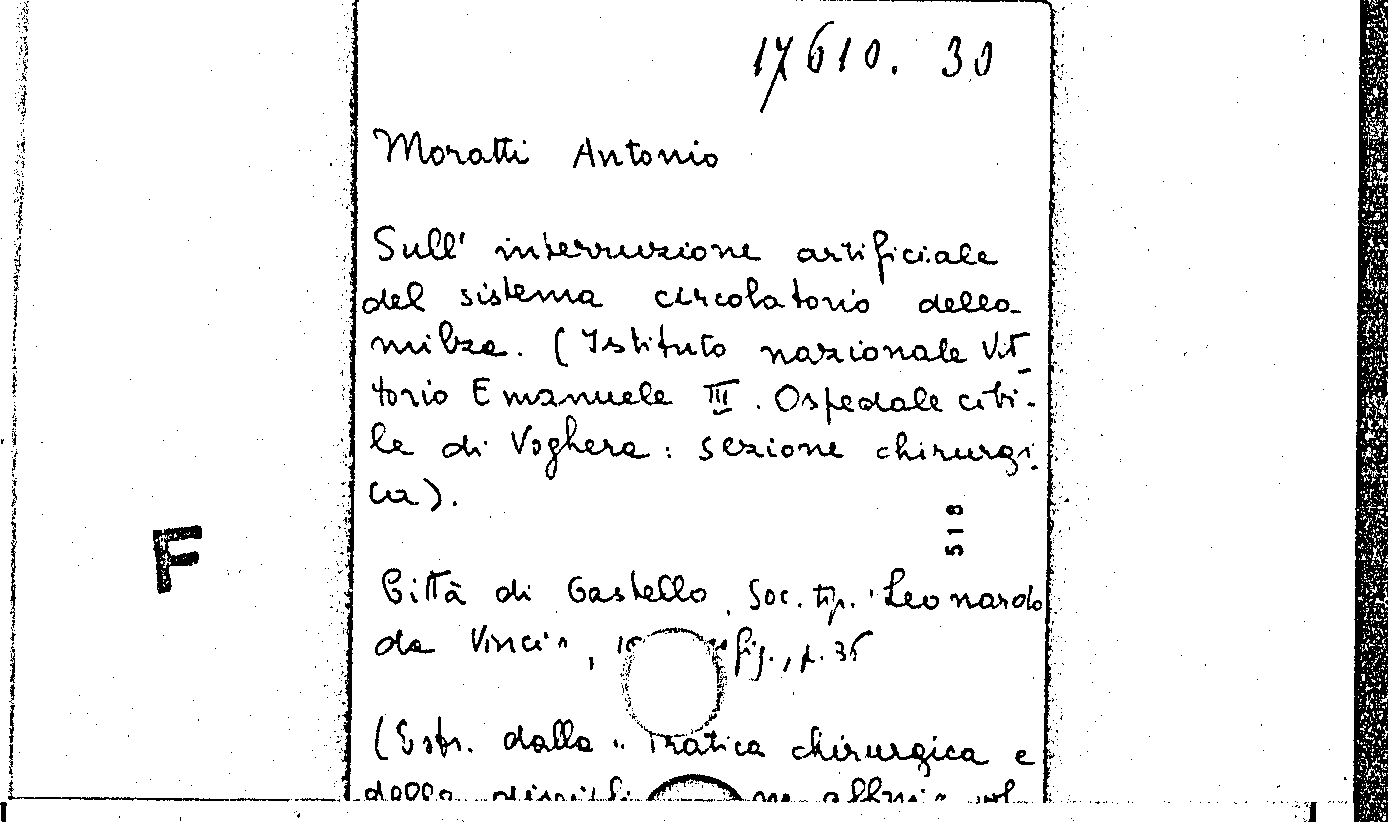 17610. 30
Moratti Antonio
Sull' interruzione artificiale
del sistema circolatorio della
milza. (Istituto nazionale Vit_
torio Emanuele III. Ospedale civi-
le di Voghera: sezione chirurgi-
ca).
518
F
Città di Castello, Soc. tip. "Leonardo
da Vinci", fig., p. 36
(Estr. dalla "Pratica chirurgica e